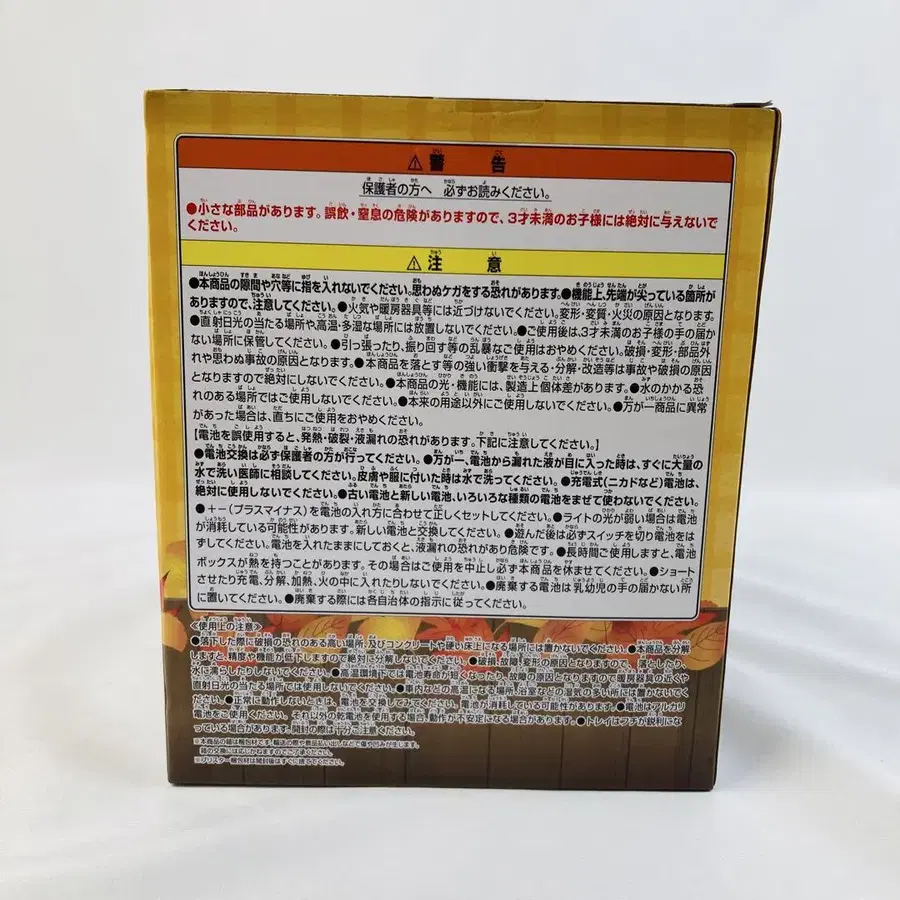 ⚠警告
保護者の方へ 必ずお読みください。
●小さな部品があります。誤飲・窒息の危険がありますので、3才未満のお子様には絶対に与えないで
ください。
⚠注意
●本商品の隙間や穴等に指を入れないでください。思わぬケガをする恐れがあります。●機能上、先端が尖っている箇所が
ありますので、注意してください。●火気や暖房器具等には近づけないでください。変形・変質・火災の原因となります。
●直射日光の当たる場所や高温・多湿な場所には放置しないでください。●ご使用後は、3才未満のお子様の手の届か
ない場所に保管してください。●引っ張ったり、振り回す等の乱暴なご使用はおやめください。破損・変形・部品外
れや思わぬ事故の原因となります。●本商品を落とす等の強い衝撃を与える・分解・改造等は事故や破損の原因
となりますので絶対にしないでください。●本商品の光・機能には、製造上個体差があります。●水のかかる恐
れのある場所ではご使用しないでください。●本来の用途以外にご使用しないでください。●万が一商品に異常
があった場合は、直ちにご使用をおやめください。
【電池を誤使用すると、発熱・破裂・液漏れの恐れがあります。下記に注意してください。】
●電池交換は必ず保護者の方が行ってください。●万が一、電池から漏れた液が目に入った時は、すぐに大量の
水で洗い医師に相談してください。皮膚や服に付いた時は水で洗ってください。●充電式(ニカドなど)電池は、
絶対に使用しないでください。●古い電池と新しい電池、いろいろな種類の電池をまぜて使わないでください。
●+-(プラスマイナス)を電池の入れ方に合わせて正しくセットしてください。●ライトの光が弱い場合は電池
が消耗している可能性があります。新しい電池と交換してください。●遊んだ後は必ずスイッチを切り電池をは
ずしてください。電池を入れたままにしておくと、液漏れの恐れがあり危険です。●長時間ご使用しますと、電池
ボックスが熱を持つことがあります。その場合はご使用を中止し必ず本商品を休ませてください。●ショート
させたり充電、分解、加熱、火の中に入れたりしないでください。●廃棄する電池は乳幼児の手の届かない所
に置いてください。●廃棄する際には各自治体の指示に従ってください。
≪使用上の注意≫
●落下した際に破損の恐れのある高い場所、及びコンクリートや硬い床上になる場所には置かないでください。●本商品を分解
しますと、精度や機能が低下しますので絶対に分解しないでください。●破損、故障、変形の原因となりますので、落としたり、
水に濡らしたりしないでください。●高温環境下では電池寿命が短くなったり、故障の原因となりますので暖房器具の近くや
直射日光の当たる場所では使用しないでください。●車内などの高温になる場所、浴室などの湿気の多い所には置かないでくだ
さい。●正常に動作しないときは、電池を交換してみてください。電池が消耗している可能性があります。●電池はアルカリ
電池をご使用ください。それ以外の乾電池を使用する場合、動作が不安定になる場合があります。●トレイはフチが鋭利にな
っている場合があります。開封の際は十分ご注意ください。
※本商品の箱は梱包材です。輸送の際や景品払い出しなどで傷や凹みが生じます。
箱の交換には応じかねますのでご了承ください。
※ブリスター梱包材は開封後はすぐに捨ててください。